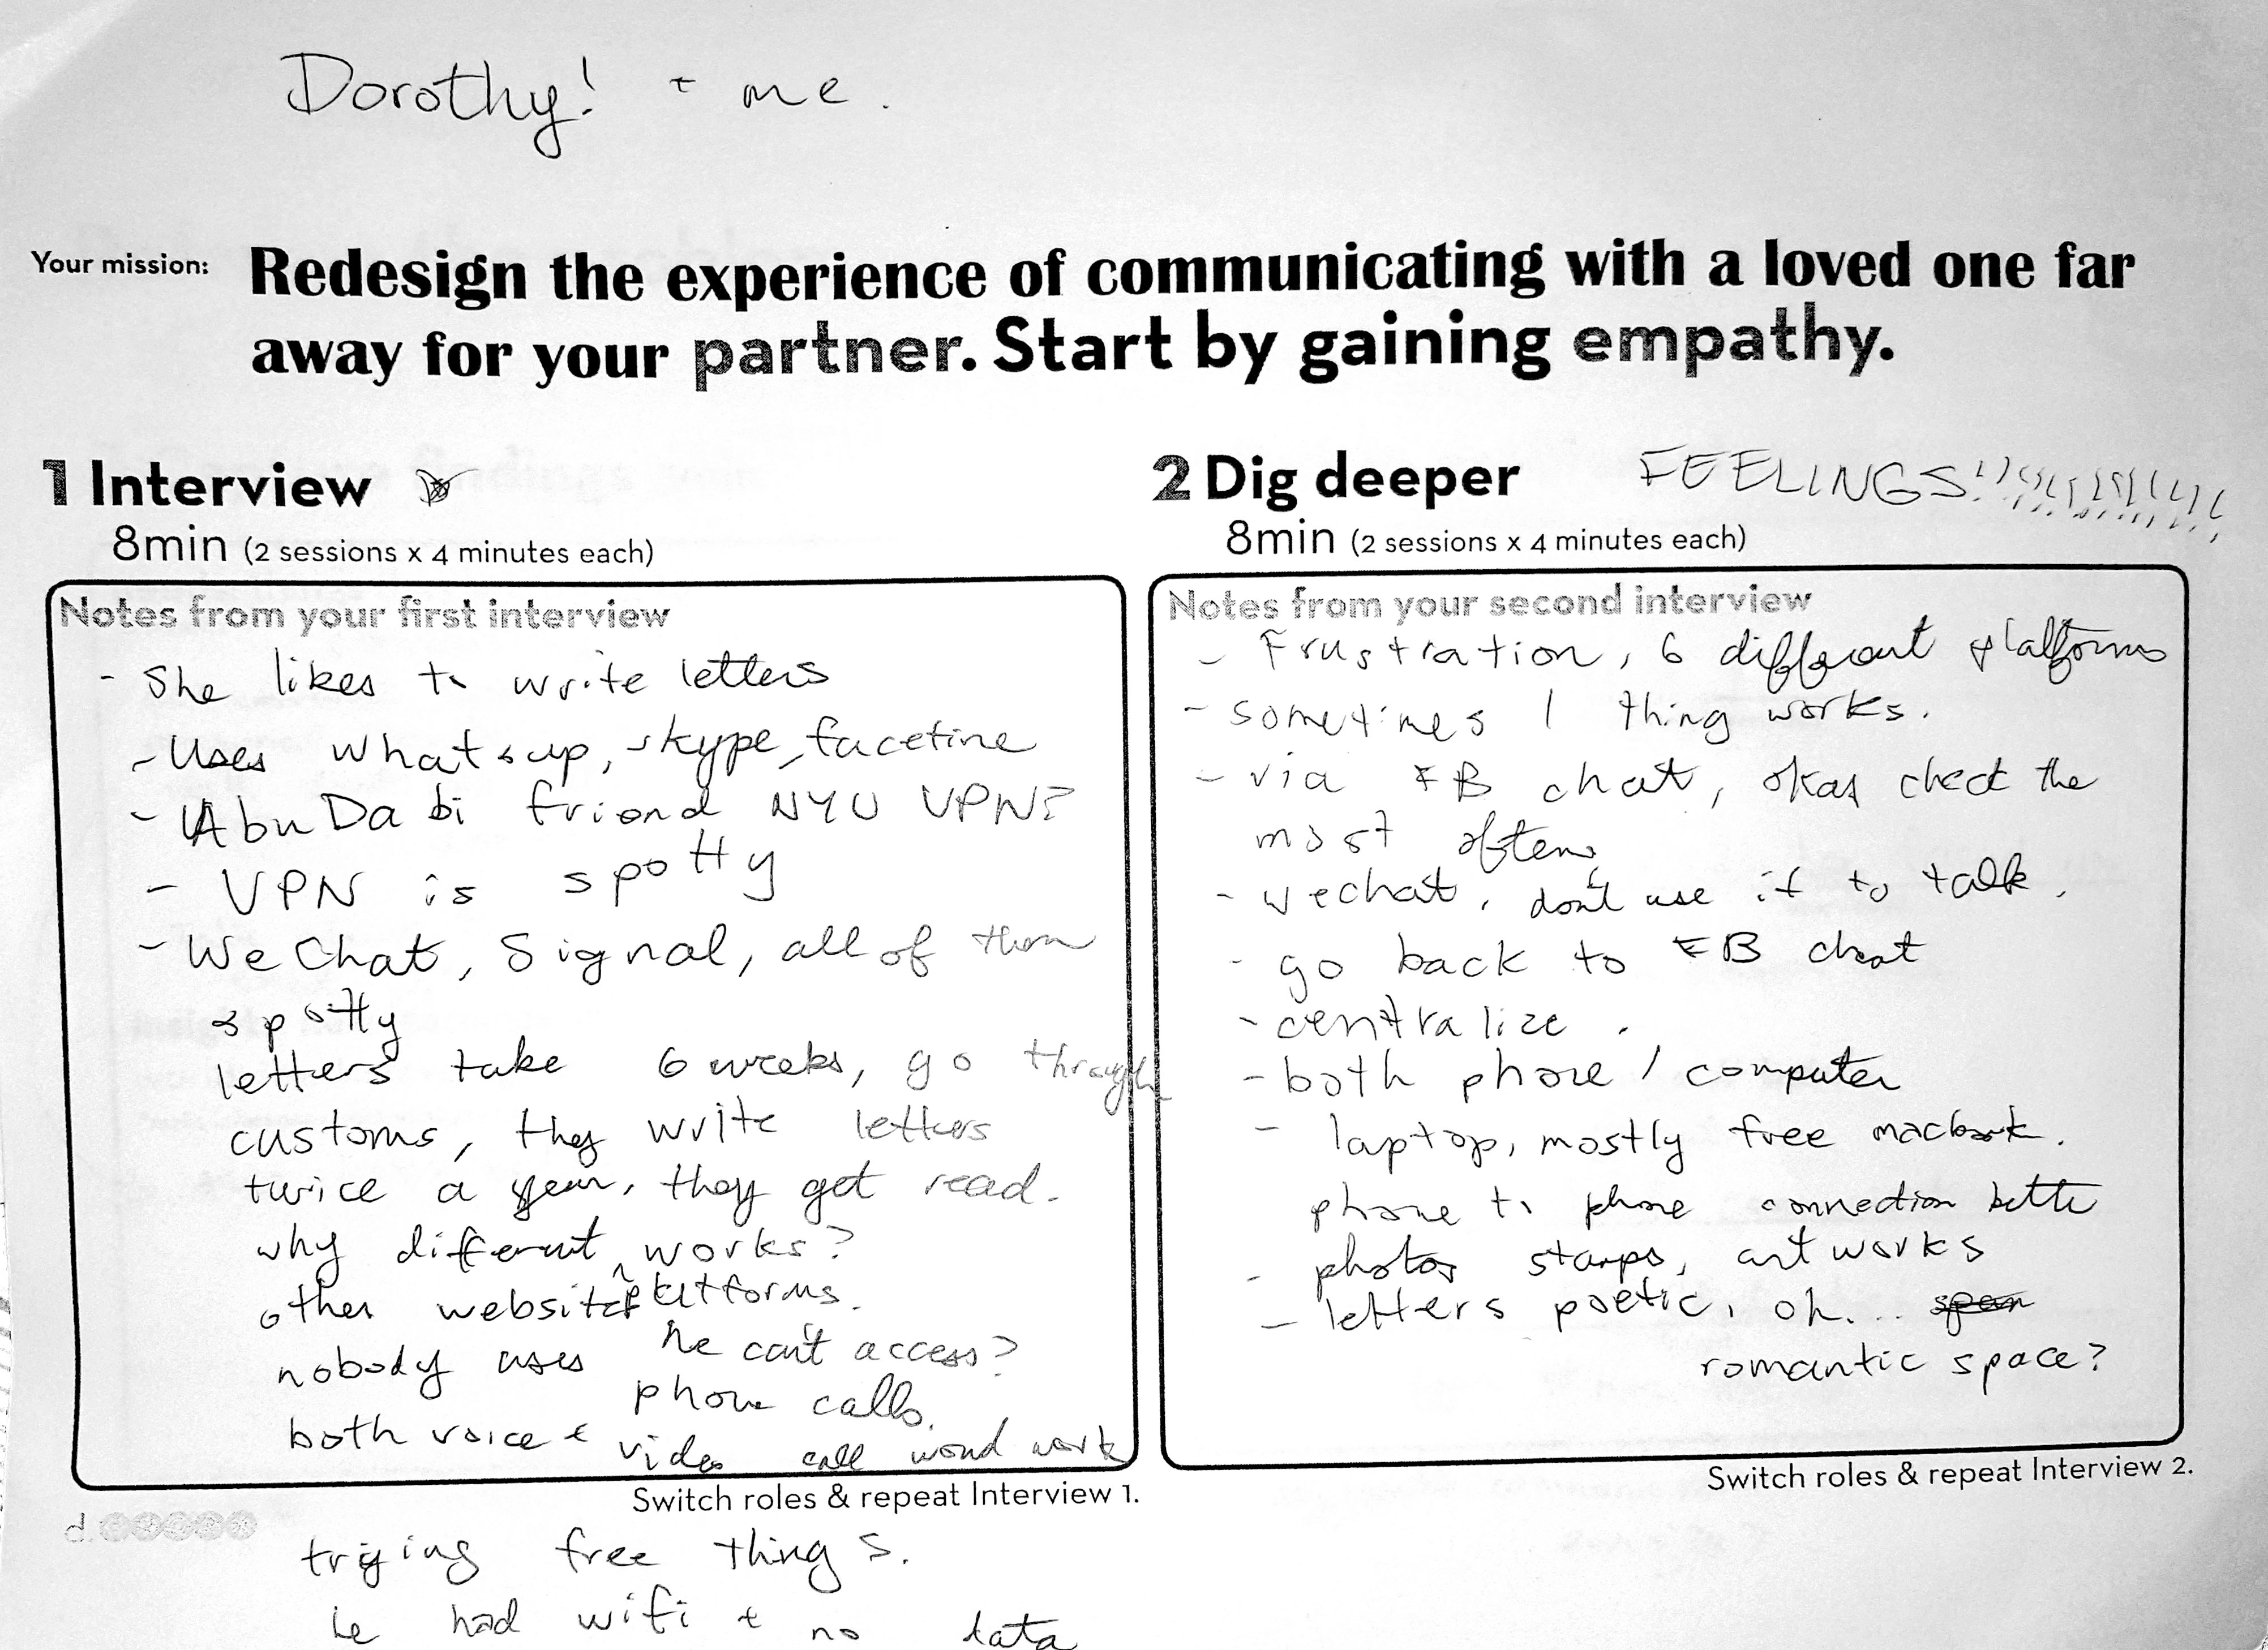 Dorothy! + me.
Your mission: Redesign the experience of communicating with a loved one far
away for your partner. Start by gaining empathy.
1 Interview
8min (2 sessions x 4 minutes each)
Notes from your first interview
- She likes to write letters
- Uses whatsup, skype, facetime
- Abu Dabi friend NYU VPN?
- VPN is spotty
- We Chat, Signal, all of them
spotty
letters take 6 weeks, go through
customs, they write letters
twice a year, they get read.
why different platforms works?
other websites he can't access?
nobody uses phone calls.
both voice + video call work
Switch roles & repeat Interview 1.
d.
trying free things.
he had wifi + no data
2 Dig deeper FEELINGS!!!!!!!!!!!!!!
8min (2 sessions x 4 minutes each)
Notes from your second interview
- Frustration, 6 different platforms
- sometimes 1 thing works.
- via FB chat, check the
most often,
- wechat, don't use it to talk.
- go back to FB chat
- centralize.
- both phone / computer
- laptop, mostly free macbook.
phone to phone connection better
- photos stamps, artworks
- letters poetic, oh...
romantic space?
Switch roles & repeat Interview 2.